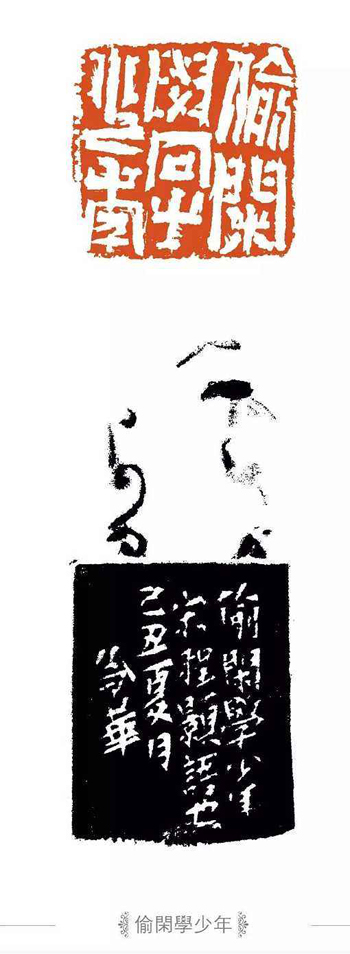 偷閑
學
少年
偷閑學少年
宋程顥語也
己丑夏月
偷閑學少年